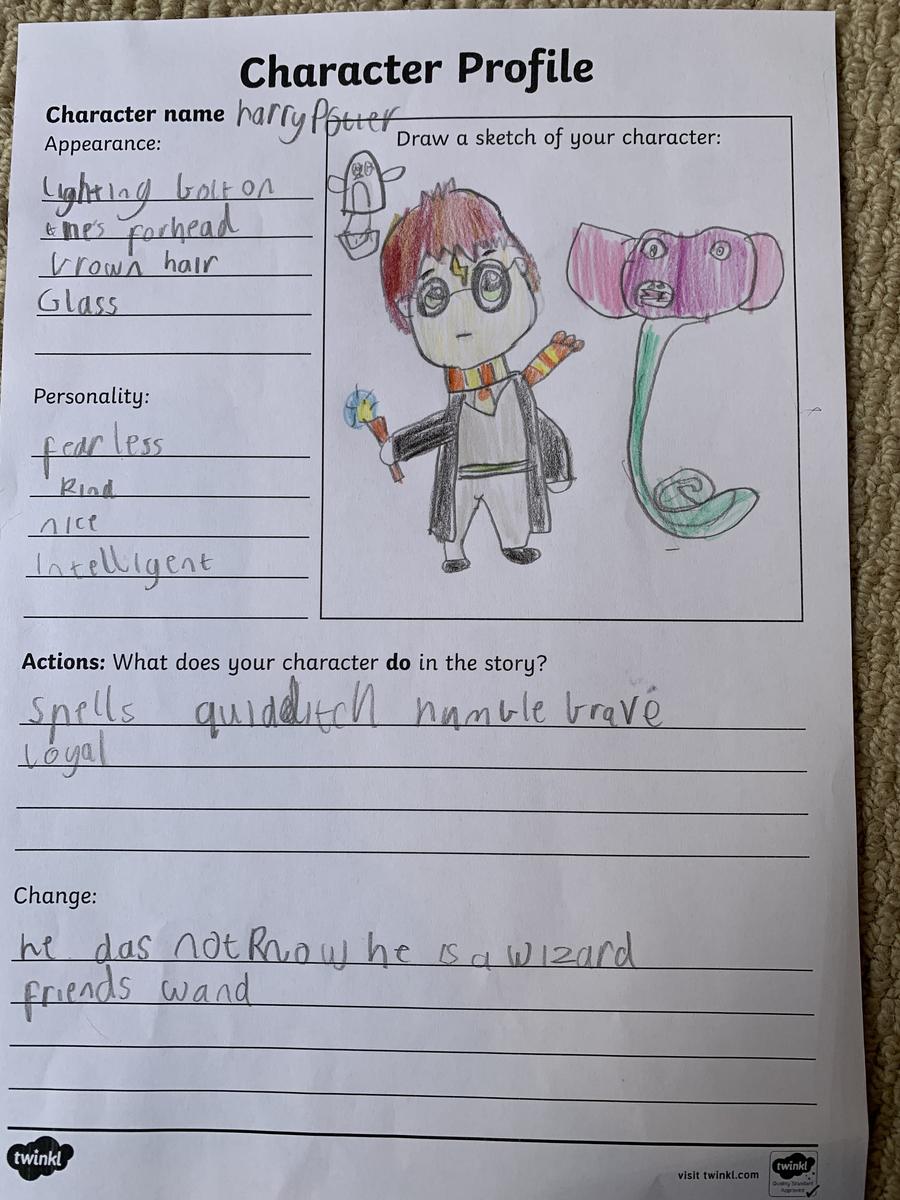 Character Profile
Character name harry Potter
Appearance:
Draw a sketch of your character:
Lighting bolt on
forhead
brown hair
Glass
Personality:
fearless
Kind
nice
Intelligent
Actions: What does your character do in the story?
Spells quidditch humble brave
Loyal
Change:
he das not Know he is a wizard
friends wand
twinkl
visit twinkl.com
twinkl
Quality Standard
Approved